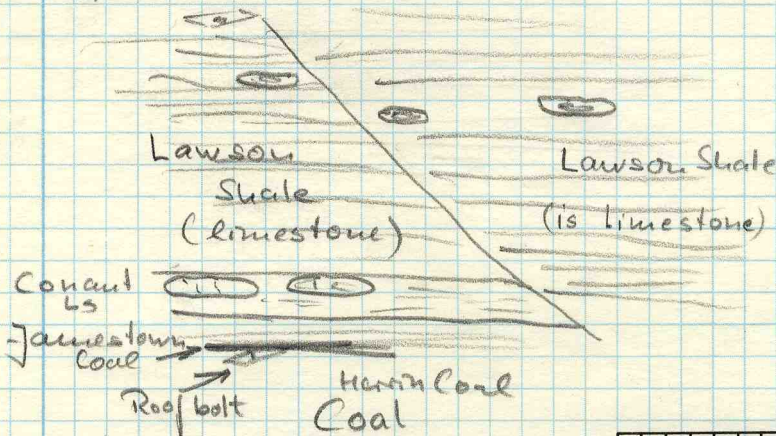 Lawson
Shale
(limestone)
Lawson Shale
(is limestone)
Conant
Ls
Jamestown
Coal
Roof bolt
Herrin Coal
Coal